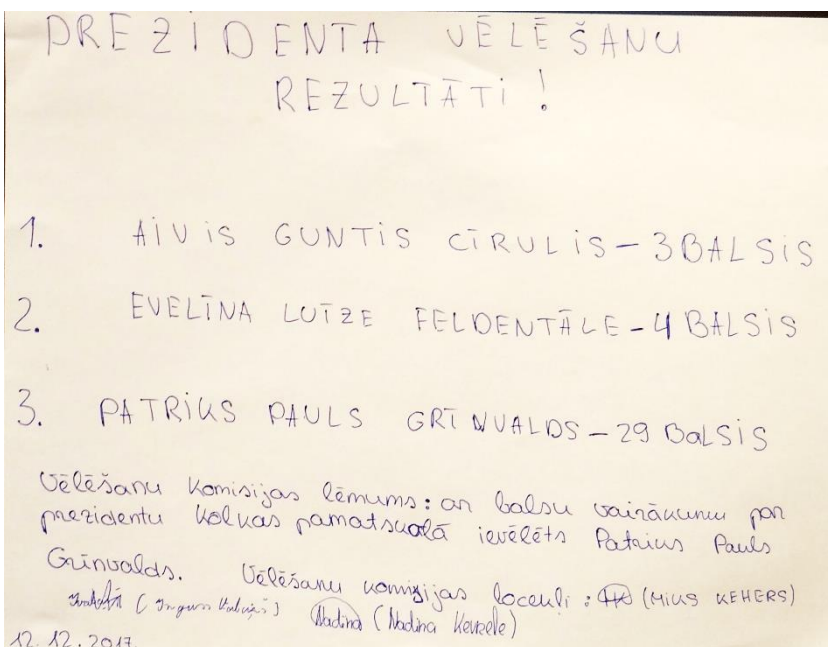 PREZIDENTA VĒLĒŠANU
REZULTĀTI!
1. AIVIS GUNTIS CĪRULIS – 3 BALSIS
2. EVELĪNA LUĪZE FELDENTĀLE – 4 BALSIS
3. PATRIKS PAULS GRĪNVALDS – 29 BALSIS
Vēlēšanu komisijas lēmums: ar balsu vairākumu par
prezidentu Kolkas pamatskolā ievēlēts Patriks Pauls
Grīnvalds. Vēlēšanu komisijas locekļi: (MIKS KEHERS)
Nadīna (Nadīna
12.12.2017.